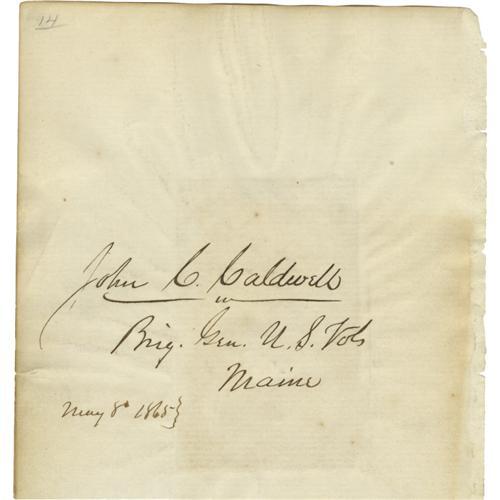 14
John C. Caldwell
Brig. Gen. U. S. Vols
Maine
May 8" 1865}